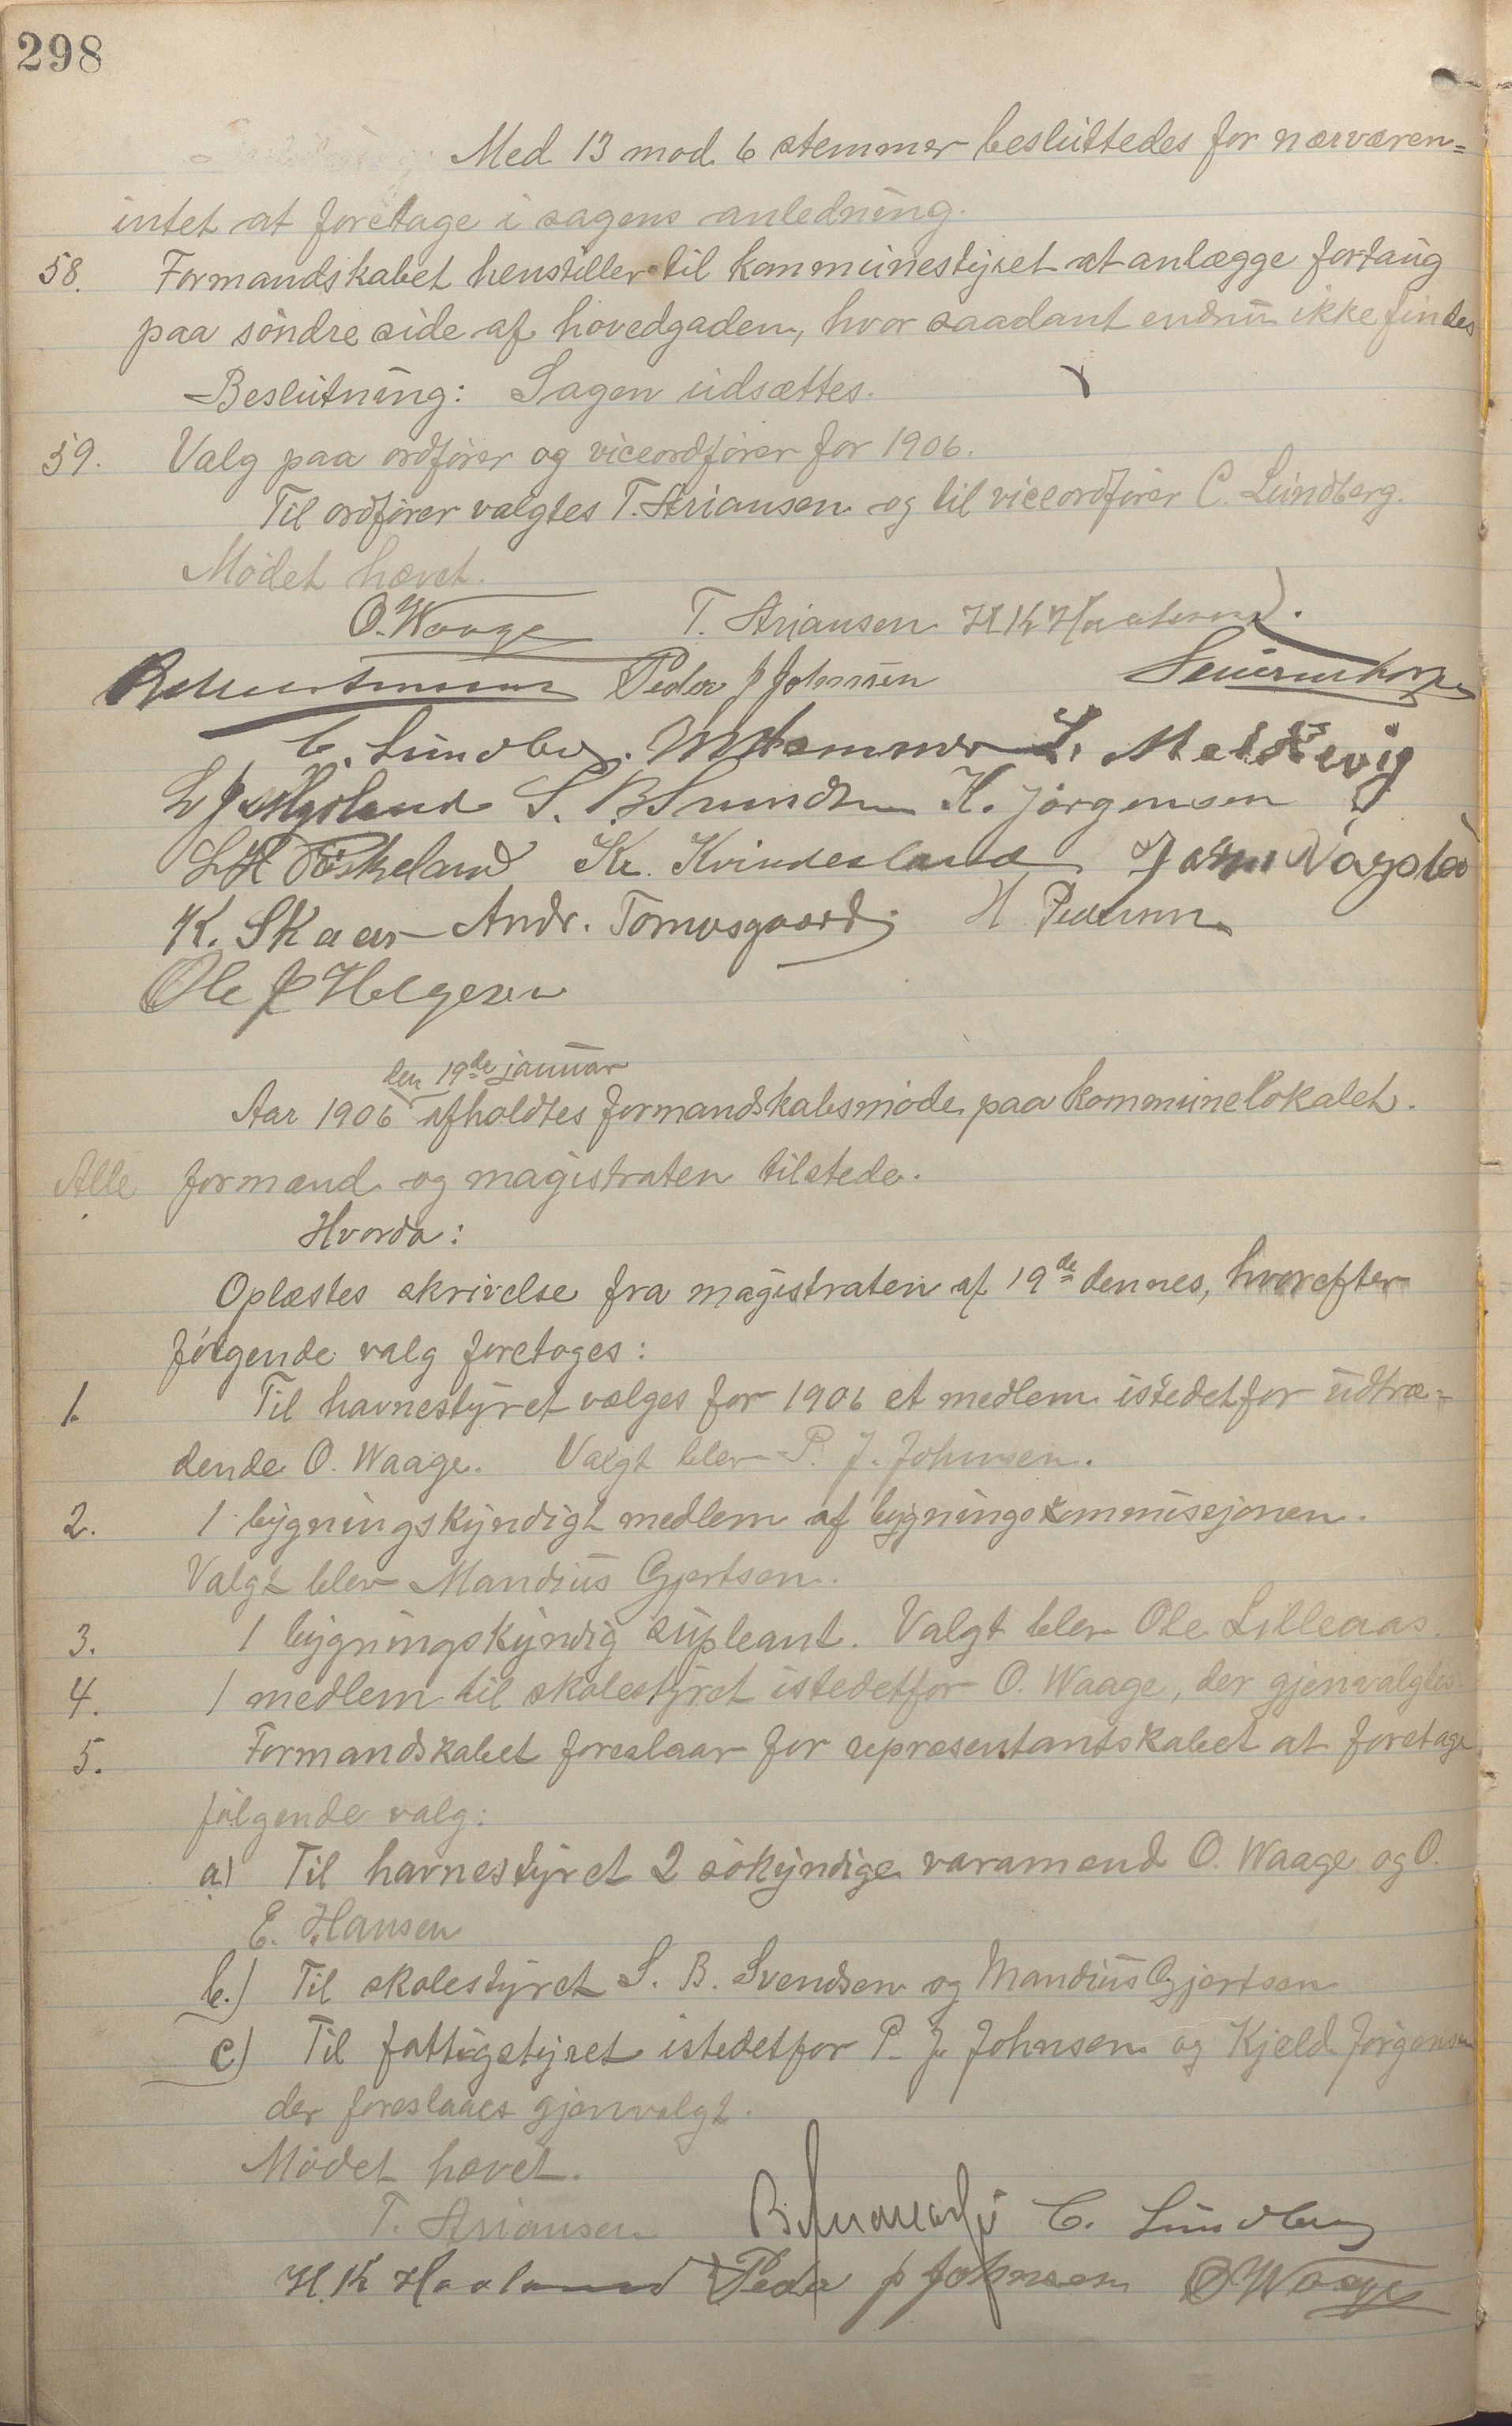 298
Med 13 mod 6 stemmer besluttedes for nærværen=
intet at foretage i sagens anledning.
58. Formandskabet henstiller til kommunestyret at anlægge fortaug
paa søndre side af hovedgaden, hvor saadant endnu ikke findes
Beslutning: Sagen udsættes.
59. Valg paa ordfører og viceordfører for 1906.
Til ordfører valgtes T. Ariansen og til viceordfører C. Lundberg.
Mødet hævet.
O. Waage T. Ariansen H K Haaland.
Peder J Johnsen
C. Lundberg. M Hammer S.
L J S. B. K. Jørgensen
L H Øskeland Kr. Kvinnesland John
K. Skaar Andr. Tornesgaard. H Pedersen
Ole J Helgesen
den 19de januar
Aar 1906 afholdtes formandskabsmøde paa kommunelokalet.
Alle formænd og magistraten tilstede.
Hvorda:
Oplæstes skrivelse fra magistraten af 19de dennes, hvorefter
følgende valg foretoges:
1. Til havnestyret vælges for 1906 et medlem istedetfor udtræ=
dende O. Waage. Valgt blev P. J. Johnsen.
2. 1 bygningskyndigt medlem af bygningskommissjonen.
Valgt blev Mandius Gjertsen.
3. 1 bygningskyndig supleant. Valgt blev Ole Lilleaas.
4. 1 medlem til skolestyret istedetfor O. Waage, der gjenvalgtes.
5. Formandskabet foreslaar for repræsentantskabet at foretage
følgende valg:
a) Til havnestyret 2 søkyndige varamænd O. Waage og O.
E. Hansen
b.) Til skolestyret S. B. Svendsen og Mandius Gjertsen
c) Til fattigstyret istedetfor P. J. Johnsen og Kjeld Jørgensen
der foreslaaes gjenvalgt.
Mødet hævet.
T. Ariansen C. Lundberg
H. K Haaland Peder J Johnsen O Waage